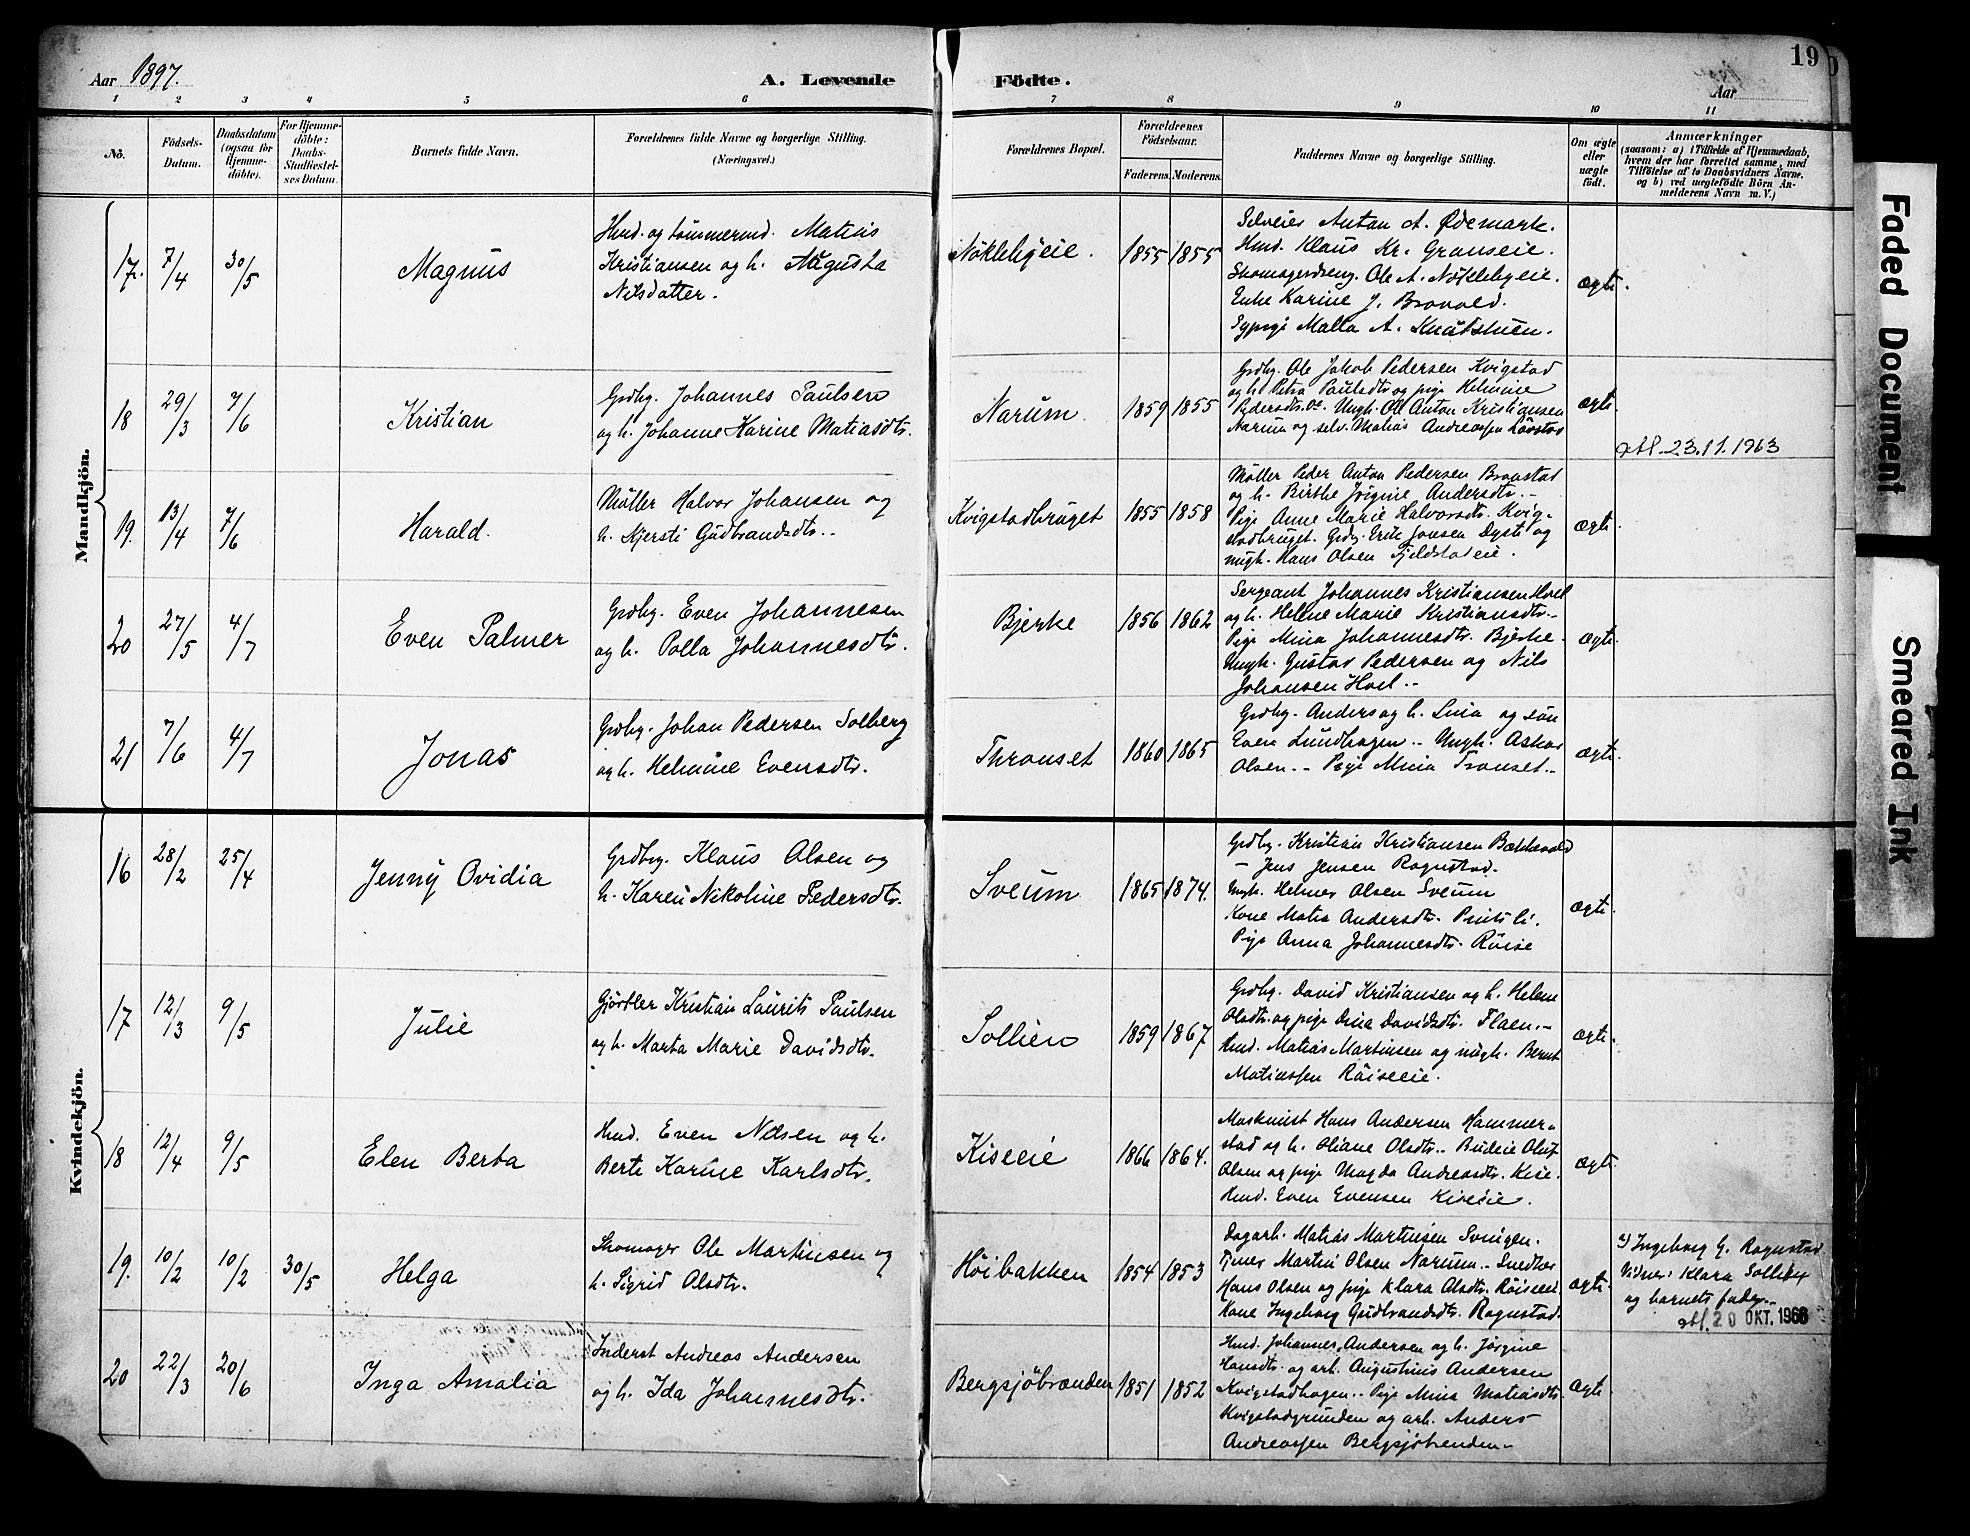 Aar 1897.
A. Levende Födte.
19
Aar
1 2 3 4 5 6 7 8 9 10 11
No.
Födsels-Datum.
Daabsdatum (ogsaa for Hjemme-döbte).
For Hjemme-döbte: Daabs-Stadfæstel-ses Datum.
Barnets fulde Navn.
Forældrenes fulde Navne og borgerlige Stilling.
(Næringsvei.)
Forældrenes Bopæl.
Forældrenes Födselsaar.
Faderens. Moderens.
Faddernes Navne og borgerlige Stilling.
Om ægte eller uægte födt.
Anmærkninger
(saasom: a) i Tilfælde af Hjemmedaab,
hvem der har forrettet samme, med
Tilföielse af to Daabsvidners Navne.
og b) ved uægtefödte Börn An-
melderens Navn m. V.)
Mandkjön.
17. 7/4 30/5 Magnus
Hmd. og tømmermd. Matias
Kristiansen og h. Augusta
Nilsdatter.
Nøklebyeie. 1855 1855
Selveier Anton A. Ødemark.
Hmd. Klaus Kr. Granseie.
Skomagerdreng. Ole A. Nøklebyeie.
Enke Karine J. Brovold.
Sypige Malla A. Knutstuen.
ægte.
18 29/3 7/6 Kristian
Grdbr. Johannes Paulsen
og h. Johanne Karine Matiasdtr.
Narum. 1859 1855
Grdbr. Ole Jakob Pedersen Kvigstad
og h. Petra Paulsdtr og pige Helmine
Pedersdtr. Ungk. Ole Anton Kristiansen
Narum og selv. Matias Andreassen Løvstad
ægte.
23.11.1963
19. 13/4 7/6 Harald.
Møller Halvor Johansen og
h. Kjersti Gudbrandsdtr.
Kvigstadbruget 1855 1858
Møller Peder Anton Pedersen Bronstad
og h. Birthe Jørgine Andersdtr.
Pige Anne Marie Halvorsdtr. Kvig-
stadbruget. Grdbr. Erik Jonsen Dyste og
ungk. Hans Olsen Fjeldstadeie.
ægte
20 27/5 4/7 Even Palmer
Grdbr. Even Johannesen
og h. Polla Johannesdtr.
Bjerke 1856 1862
Sergeant Johannes Kristiansen Hoel
og h. Helene Marie Kristiansdtr.
Pige Mina Johannesdtr. Bjerke.
Ungk. Gustav Pedersen og Nils
Johansen Hoel.
ægte.
21 7/6 4/7 Jonas
Grdbr. Johan Pedersen Solberg
og h. Helmine Evensdtr.
Thronset 1860 1865
Grdbr. Anders og h. Lina og søn
Even Lundhagen. Ungk. Oskar
Olsen. Pige Mina Tronset.
ægte.
Kvindekjön.
16 28/2 25/4 Jenny Ovidia
Grdbr. Klaus Olsen og
h. Karen Nikoline Pedersdtr.
Sveum 1865 1874.
Grdbr. Kristian Kristiansen Bækkevold
— Jens Jensen Rognstad.
Ungk. Helmer Olsen Sveum
Kone Matea Andersdtr. Prits li.
Pige Anna Johannesdtr. Røise
ægte.
17 12/3 9/5 Julie
Gjørtler Kristian Laurits Paulsen
og h. Marta Marie Davidsdtr.
Sollien 1859 1867
Grdbr. David Kristiansen og h. Helene
Olsdtr. og pige Dina Davidsdtr. Flaen.
Hmd. Matias Martinsen og ungk. Bernt
Matiassen Røiseeie.
ægte.
18 12/4 9/5 Elen Berta
Hmd. Even Nilsen og h.
Berte Karine Karlsdtr.
Kiseeie 1866 1864.
Maskinist Hans Andersen Hammer-
stad og h. Oliane Olsdtr. Budeie Oluf
Olsen og pige Magda Andreasdtr. Kise.
Hmd. Even Evensen Kiseeie.
ægte.
19. 10/2 10/2 30/5 Helga
Skomager Ole Martinsen og
h. Sigrid Olsdtr.
Høibakken 1854 1853
Dagarb. Matias Martinsen Svingen.
Tjener Martin Olsen Narum. Snedker
Hans Olsen og pige Klara Olsdtr. Røiseeie
Kone Ingeborg Gudbrandsdtr. Rognstad.
ægte.
Ingeborg G. Rognstad
Vidner: Klara Sollien
og barnets fader.
20 OKT. 1966
20 22/3 20/6 Inga Amalia
Inderst Andreas Andersen
og h. Ida Johannesdtr.
Bergsjøbrænden 1851 1852
Hmd. Johannes Andersen og h. Jørgine
Hansdtr. og arb. Augustinus Andersen
Kvigstadhagen. Pige Mina Matiasdtr.
Kvigstadgrunden og arb. Anders
Andreassen Bergsjøbrenden
ægte.
Faded Document
Smeared Ink